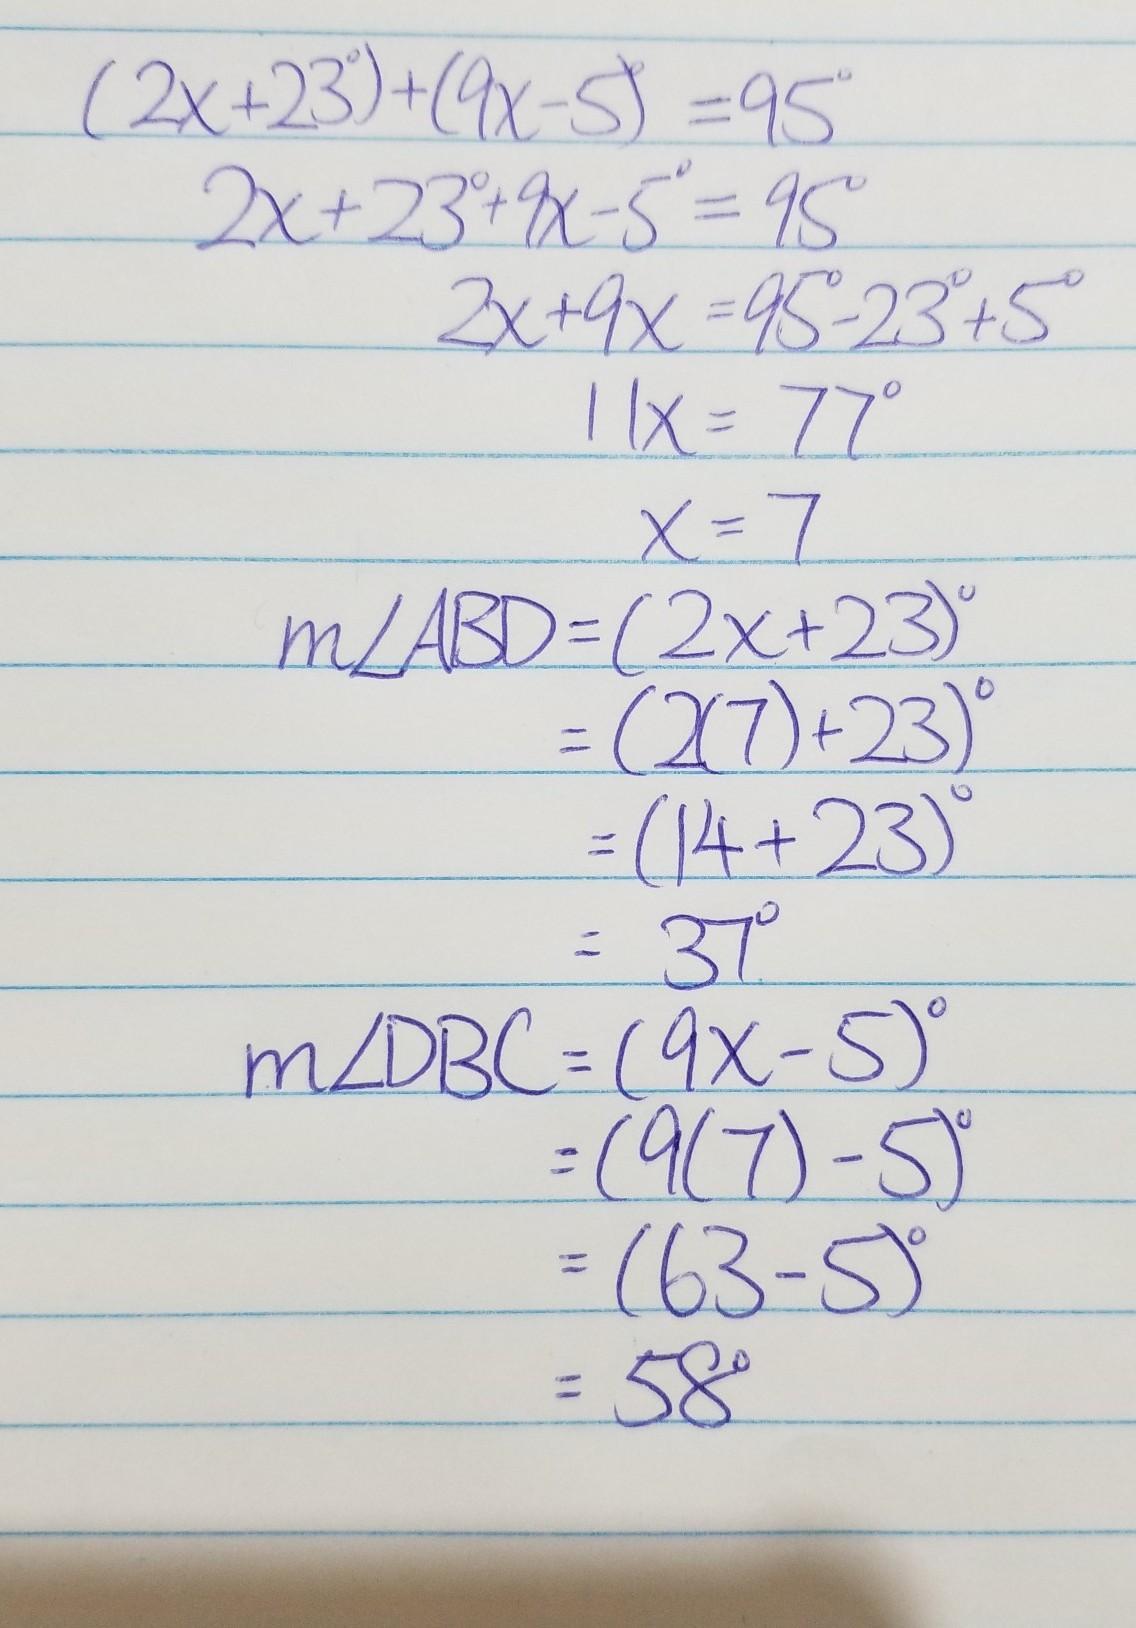 (2x+23°)+(9x-5°) =95°
2x+23°+9x-5°=95°
2x+9x =95°-23°+5°
11x= 77°
x=7
m∠ABD=(2x+23)°
=(2(7)+23)°
=(14+23)°
= 37°
m∠DBC=(9x-5)°
=(9(7)-5)°
=(63-5)°
= 58°